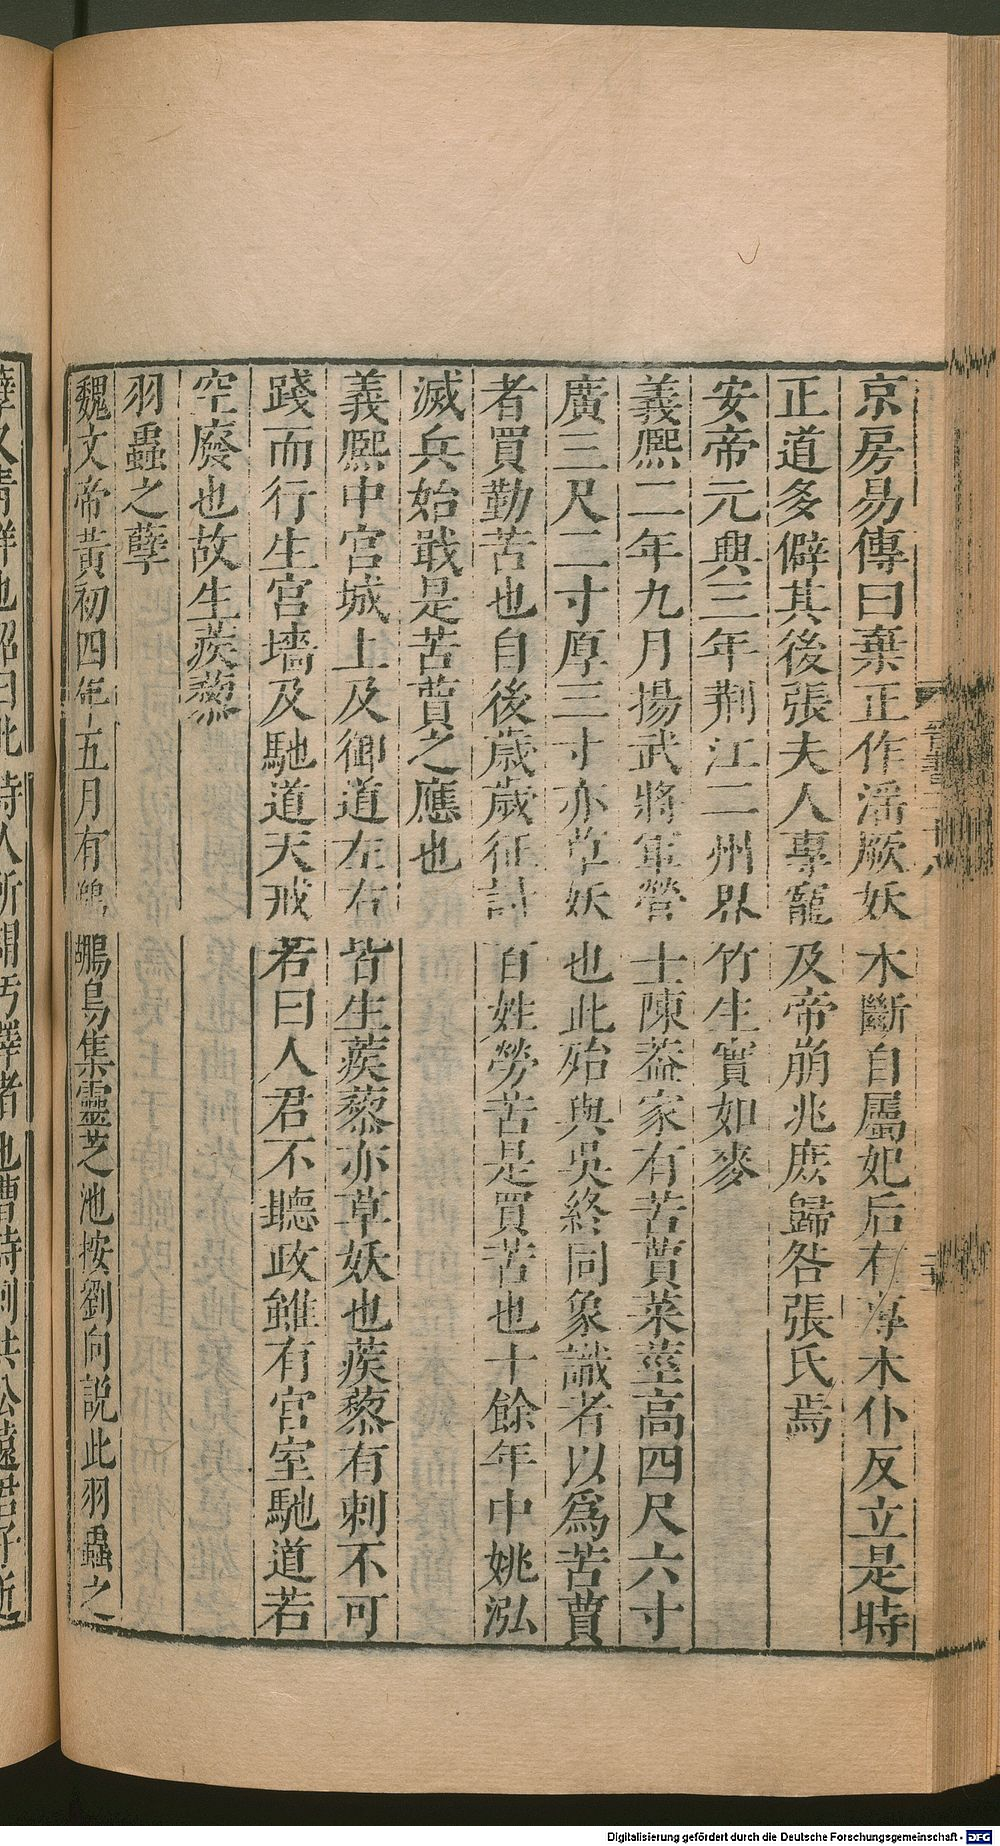 京房易傳曰棄正作淫厥妖木斷自屬妃后有專木仆反立是時
正道多僻其後張夫人專寵及帝崩兆庶歸咎張氏焉
安帝元興三年荆江二州界竹生實如麥
義熙二年九月揚武將軍營士陳蓋家有苦蕒菜莖高四尺六寸
廣三尺二寸厚三寸亦草妖也此殆與吳終同象識者以爲苦蕒
者買勤苦也自後歲歲征討百姓勞苦是買苦也十餘年中姚泓
滅兵始戢是苦蕒之應也
義熙中宮城上及御道左右皆生蒺藜亦草妖也蒺藜有刺不可
踐而行生宮墻及馳道天戒若曰人君不聽政雖有宮室馳道若
空廢也故生蒺藜
羽蟲之孽
魏文帝黃初四年五月有鵜鶘鳥集靈芝池按劉向說此羽蟲之
孽又青祥也詔曰此詩人所謂汚澤者也曹詩刺共公遠君子近
Digitalisierung gefördert durch die Deutsche Forschungsgemeinschaft - DFG